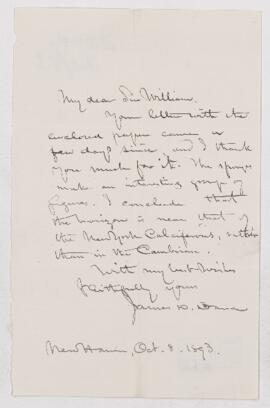 My dear Sir William,
Your letter with the
enclosed paper came a
few days since, and I thank
you much for it. The sponges
make an interesting group of
figures. I conclude that
the horizon is near that of
the New York Calciferous, rather
than in the Cambrian.
With my best wishes
Faithfully yours
James D. Dana
New Haven, Oct. 8. 1893.